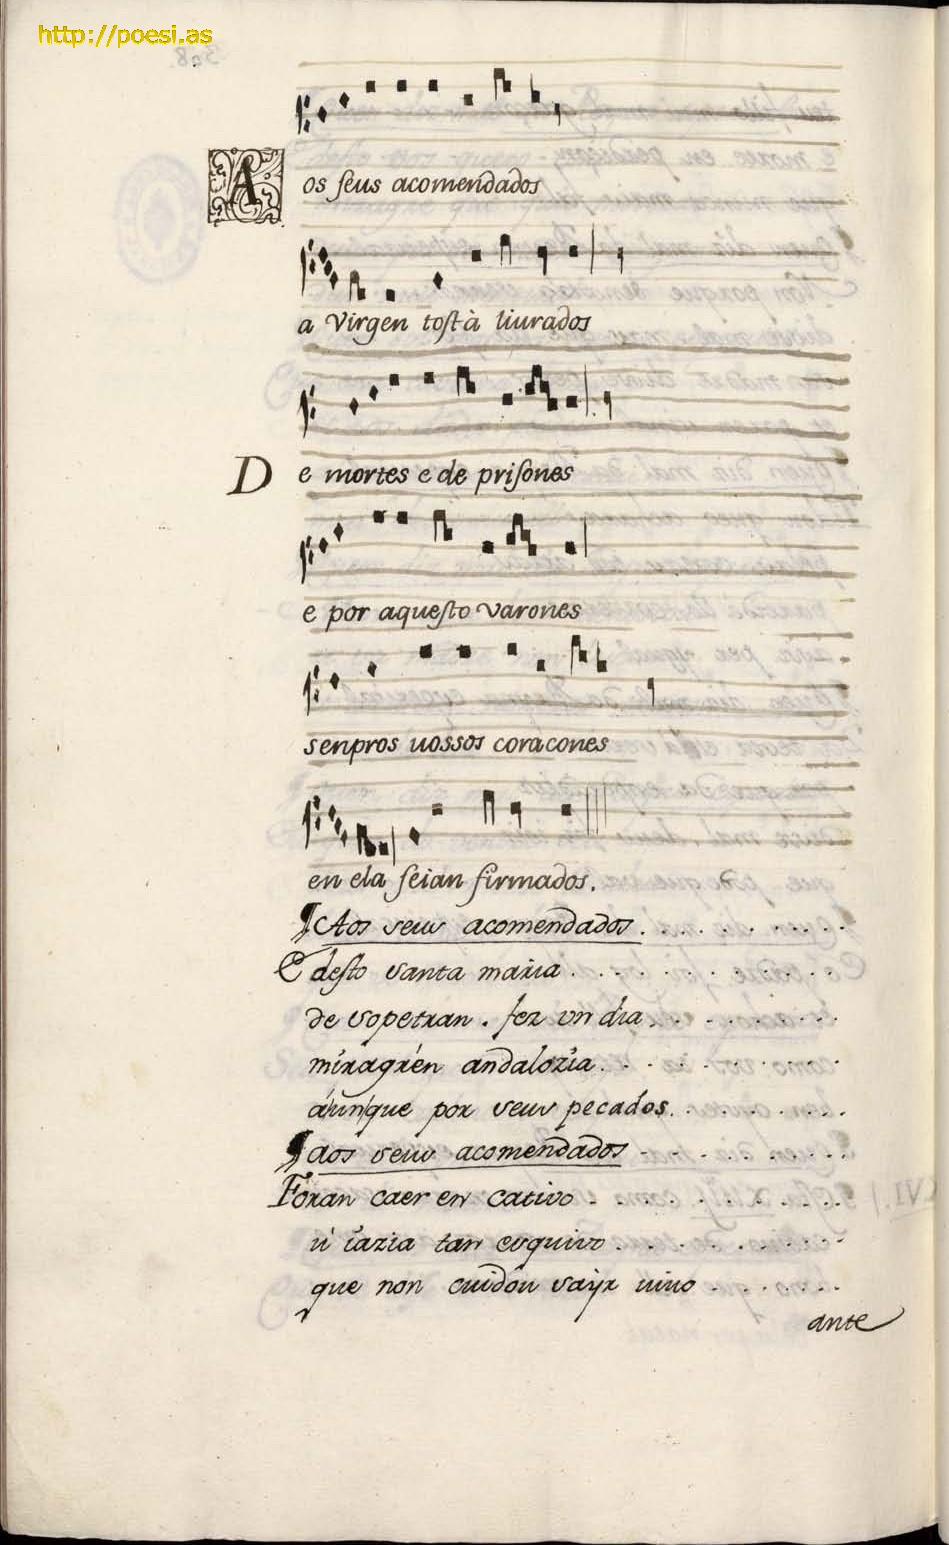 http://poesi.as
Aos seus acomendados
a Virgen tost à liurados
De mortes e de prisones
e por aquesto varones
senpros uossos coracones
en ela seian firmados.
¶ Aos seus acomendados.
E desto santa maria
de sopetran. fez un dia
miragr'en andalozia
aiunque por seus pecados.
¶ aos seus acomendados
Foran caer en cativo
u iazia tan esquivo
que non cuidou sayr uiuo
ante